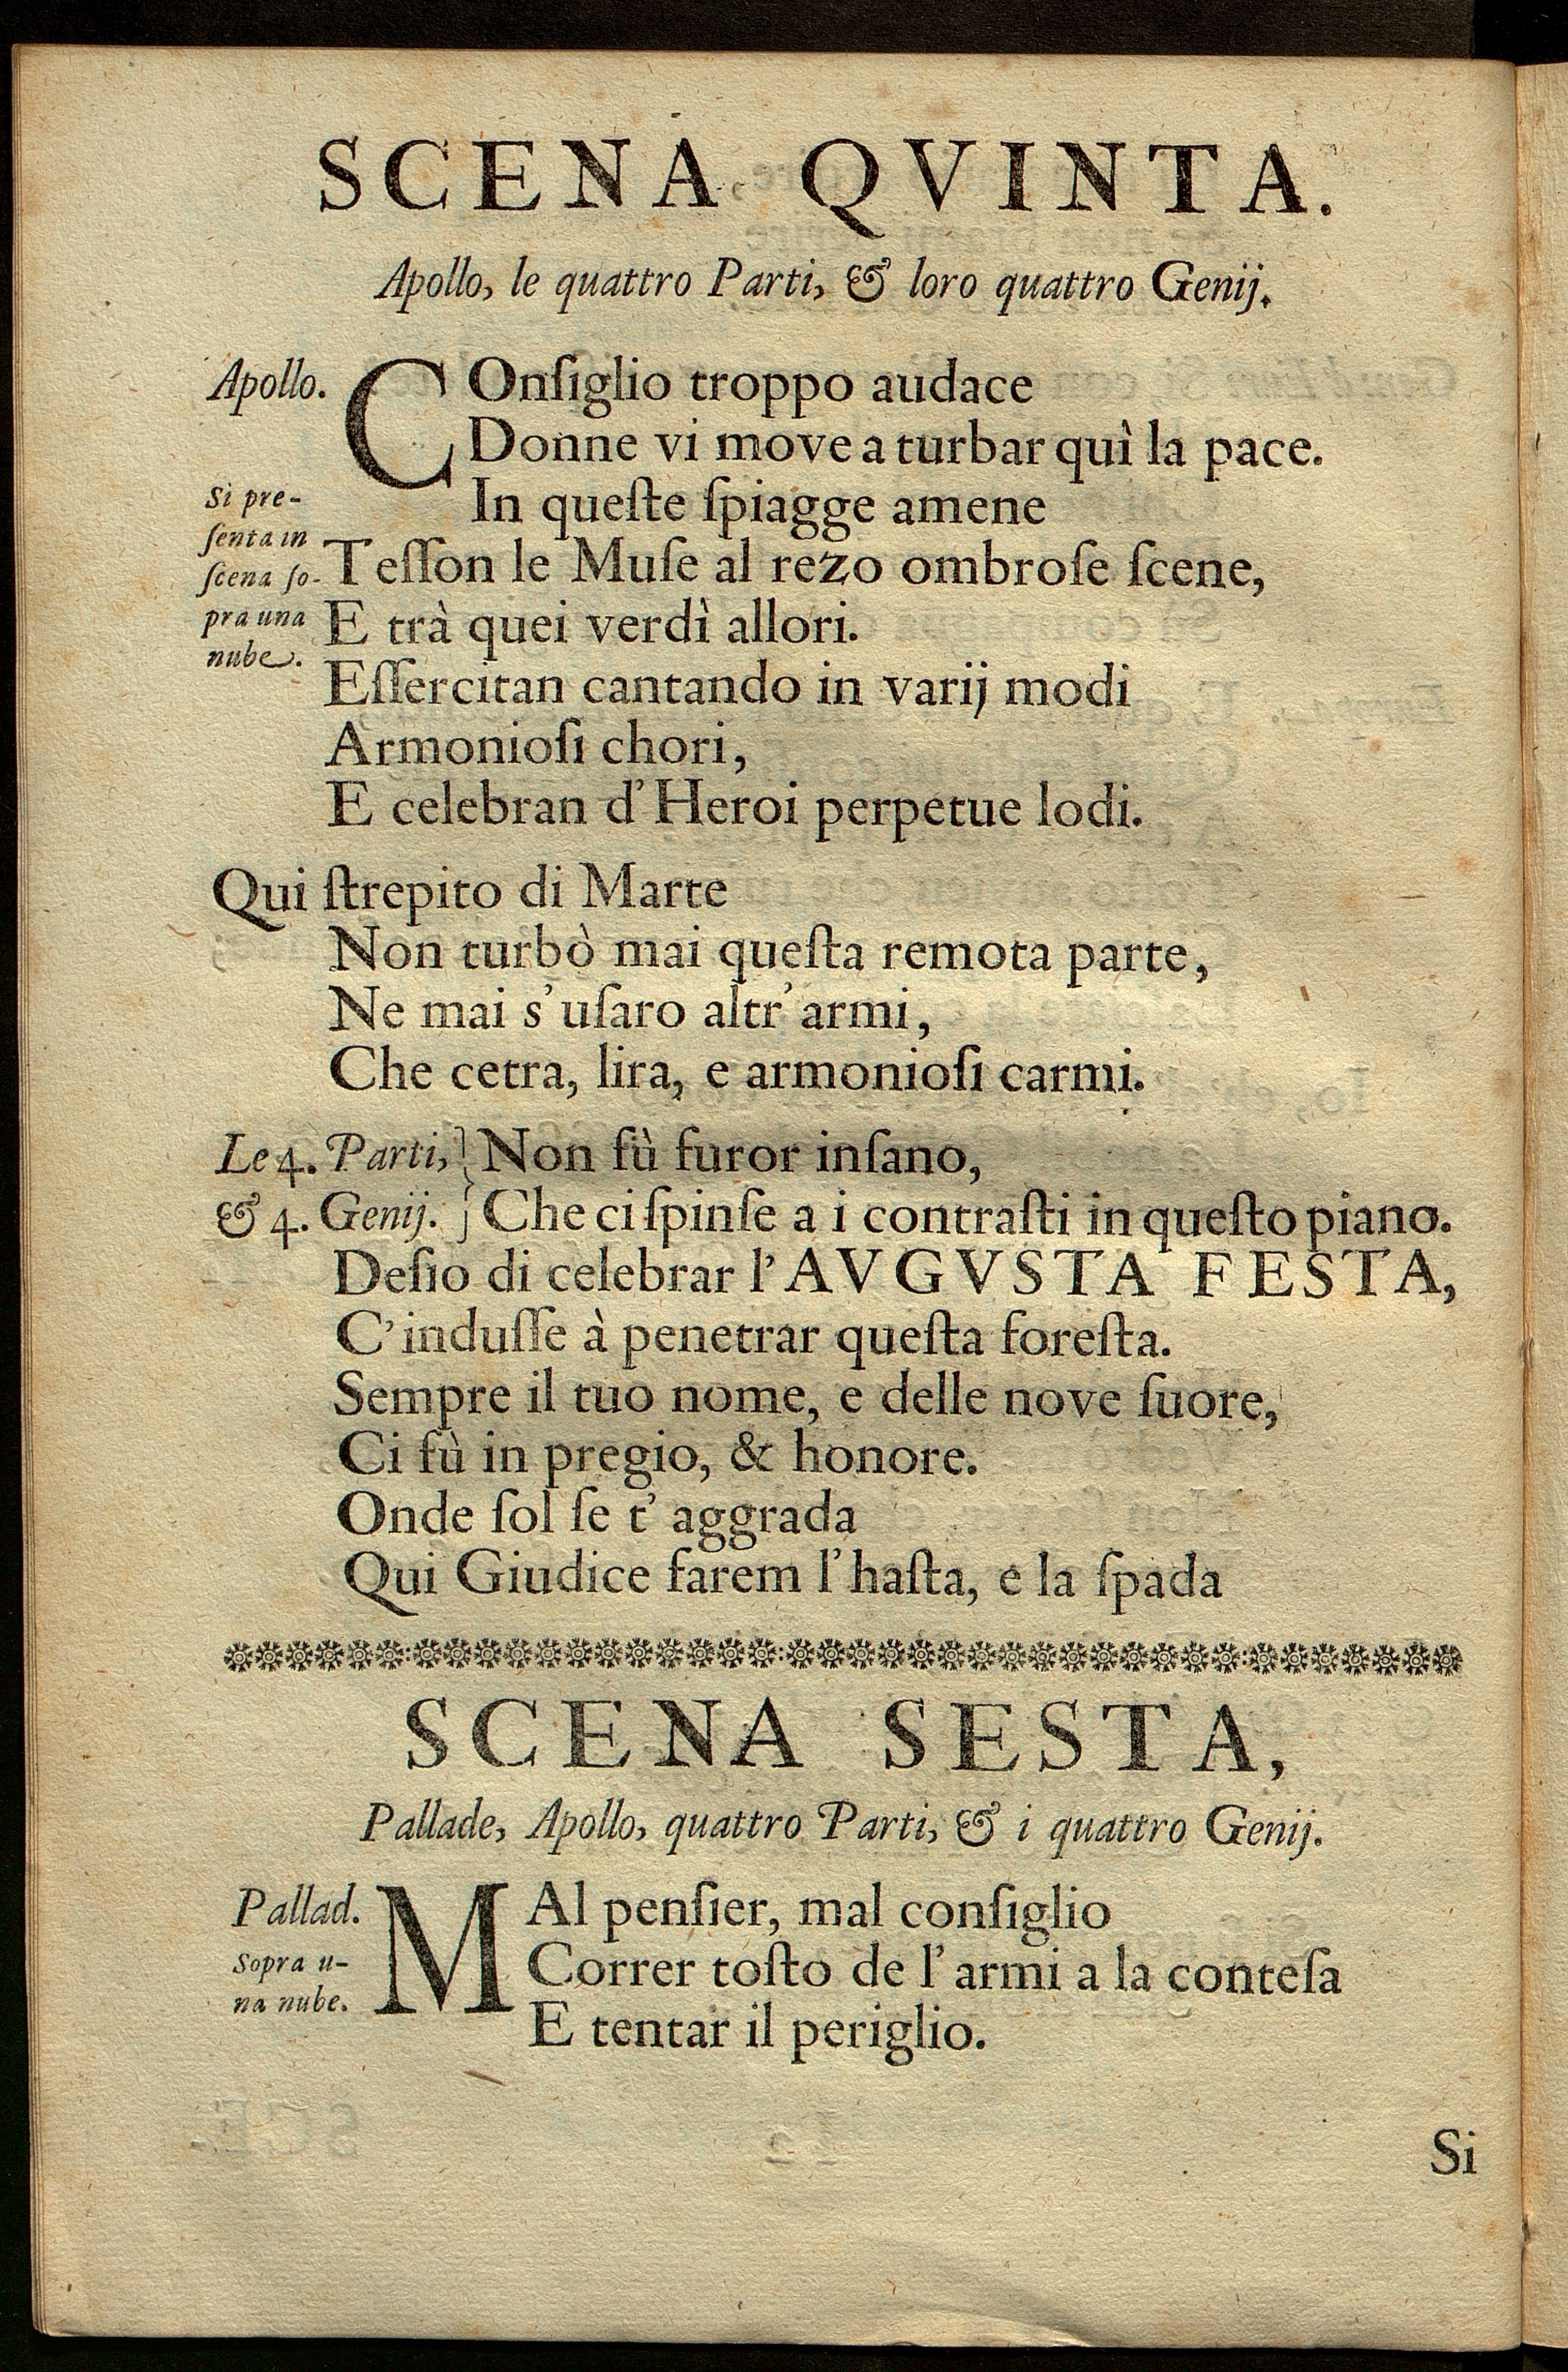 SCENA QVINTA.
Apollo, le quattro Parti, & loro quattro Genij.
Apollo. COnſiglio troppo audace
Donne vi move a turbar quì la pace.
In queſte ſpiagge amene
Si pre-
ſenta in
ſcena ſo-
pra una
nube.
Teſſon le Muſe al rezo ombroſe ſcene,
E trà quei verdì allori.
Eſſercitan cantando in varij modi
Armonioſi chori,
E celebran d'Heroi perpetue lodi.
Qui ſtrepito di Marte
Non turbò mai queſta remota parte,
Ne mai s'uſaro altr'armi,
Che cetra, lira, e armonioſi carmi.
Le 4. Parti, } Non fù furor inſano,
& 4. Genij. } Che ci ſpinſe a i contraſti in queſto piano.
Deſio di celebrar l'AVGVSTA FESTA,
C'induſſe à penetrar queſta foreſta.
Sempre il tuo nome, e delle nove ſuore,
Ci fù in pregio, & honore.
Onde ſol ſe t'aggrada
Qui Giudice farem l'haſta, e la ſpada
SCENA SESTA,
Pallade, Apollo, quattro Parti, & i quattro Genij.
Pallad. MAl penſier, mal conſiglio
Sopra u-
na nube.
Correr toſto de l'armi a la conteſa
E tentar il periglio.
Si